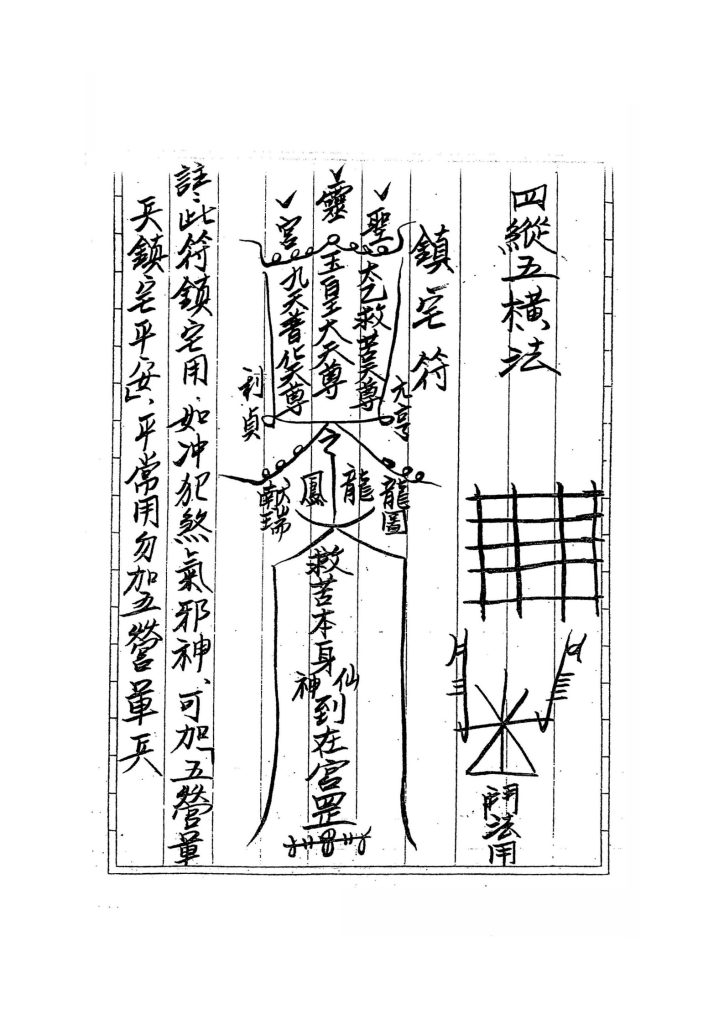 四縱五橫法
鬥法用
鎮宅符
聖
靈
宮
太乙救苦天尊
玉皇大天尊
九天普化天尊
元亨
利貞
龍圖
龍
鳳
獻瑞
救苦本身
仙
神
到在宮罡
註:此符鎮宅用.如沖犯煞氣邪神、可加「五營軍
兵鎮宅平安」、平常用勿加五營軍兵